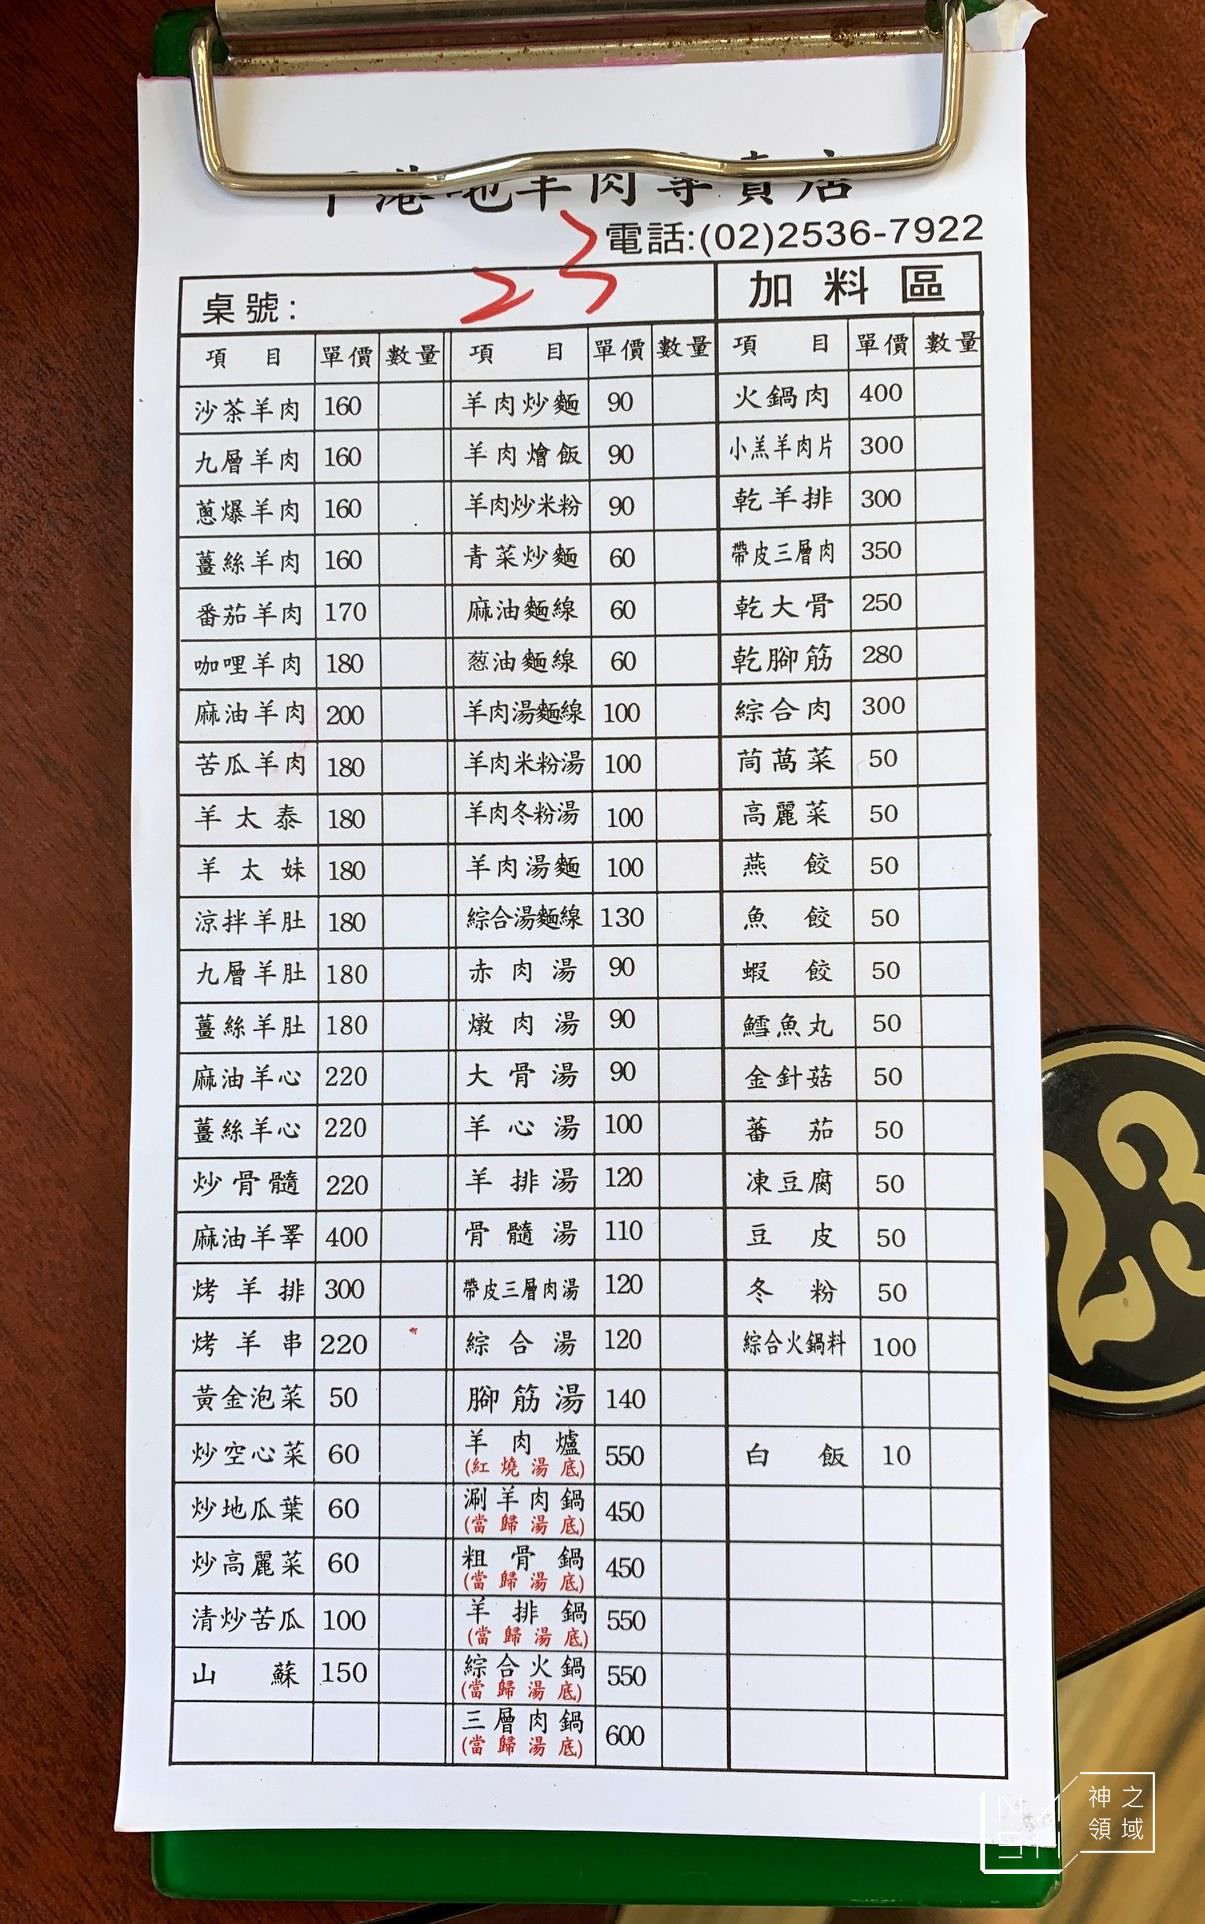 港地羊肉專賣店
電話:(02)2536-7922
桌號: 23 加料區
項目 單價 數量 項目 單價 數量 項目 單價 數量
沙茶羊肉 160 羊肉炒麵 90 火鍋肉 400
九層羊肉 160 羊肉燴飯 90 小羔羊肉片 300
蔥爆羊肉 160 羊肉炒米粉 90 乾羊排 300
薑絲羊肉 160 青菜炒麵 60 帶皮三層肉 350
番茄羊肉 170 麻油麵線 60 乾大骨 250
咖哩羊肉 180 葱油麵線 60 乾腳筋 280
麻油羊肉 200 羊肉湯麵線 100 綜合肉 300
苦瓜羊肉 180 羊肉米粉湯 100 茼萵菜 50
羊太泰 180 羊肉冬粉湯 100 高麗菜 50
羊太妹 180 羊肉湯麵 100 燕餃 50
涼拌羊肚 180 綜合湯麵線 130 魚餃 50
九層羊肚 180 赤肉湯 90 蝦餃 50
薑絲羊肚 180 燉肉湯 90 鱈魚丸 50
麻油羊心 220 大骨湯 90 金針菇 50
薑絲羊心 220 羊心湯 100 蕃茄 50
炒骨髓 220 羊排湯 120 凍豆腐 50
麻油羊睪 400 骨髓湯 110 豆皮 50
烤羊排 300 帶皮三層肉湯 120 冬粉 50
烤羊串 220 綜合湯 120 綜合火鍋料 100
黃金泡菜 50 腳筋湯 140
炒空心菜 60 羊肉爐 550 白飯 10
(紅燒湯底)
炒地瓜葉 60 涮羊肉鍋 450
(當歸湯底)
炒高麗菜 60 粗骨鍋 450
(當歸湯底)
清炒苦瓜 100 羊排鍋 550
(當歸湯底)
山蘇 150 綜合火鍋 550
(當歸湯底)
三層肉鍋 600
(當歸湯底)
23
神之
領域